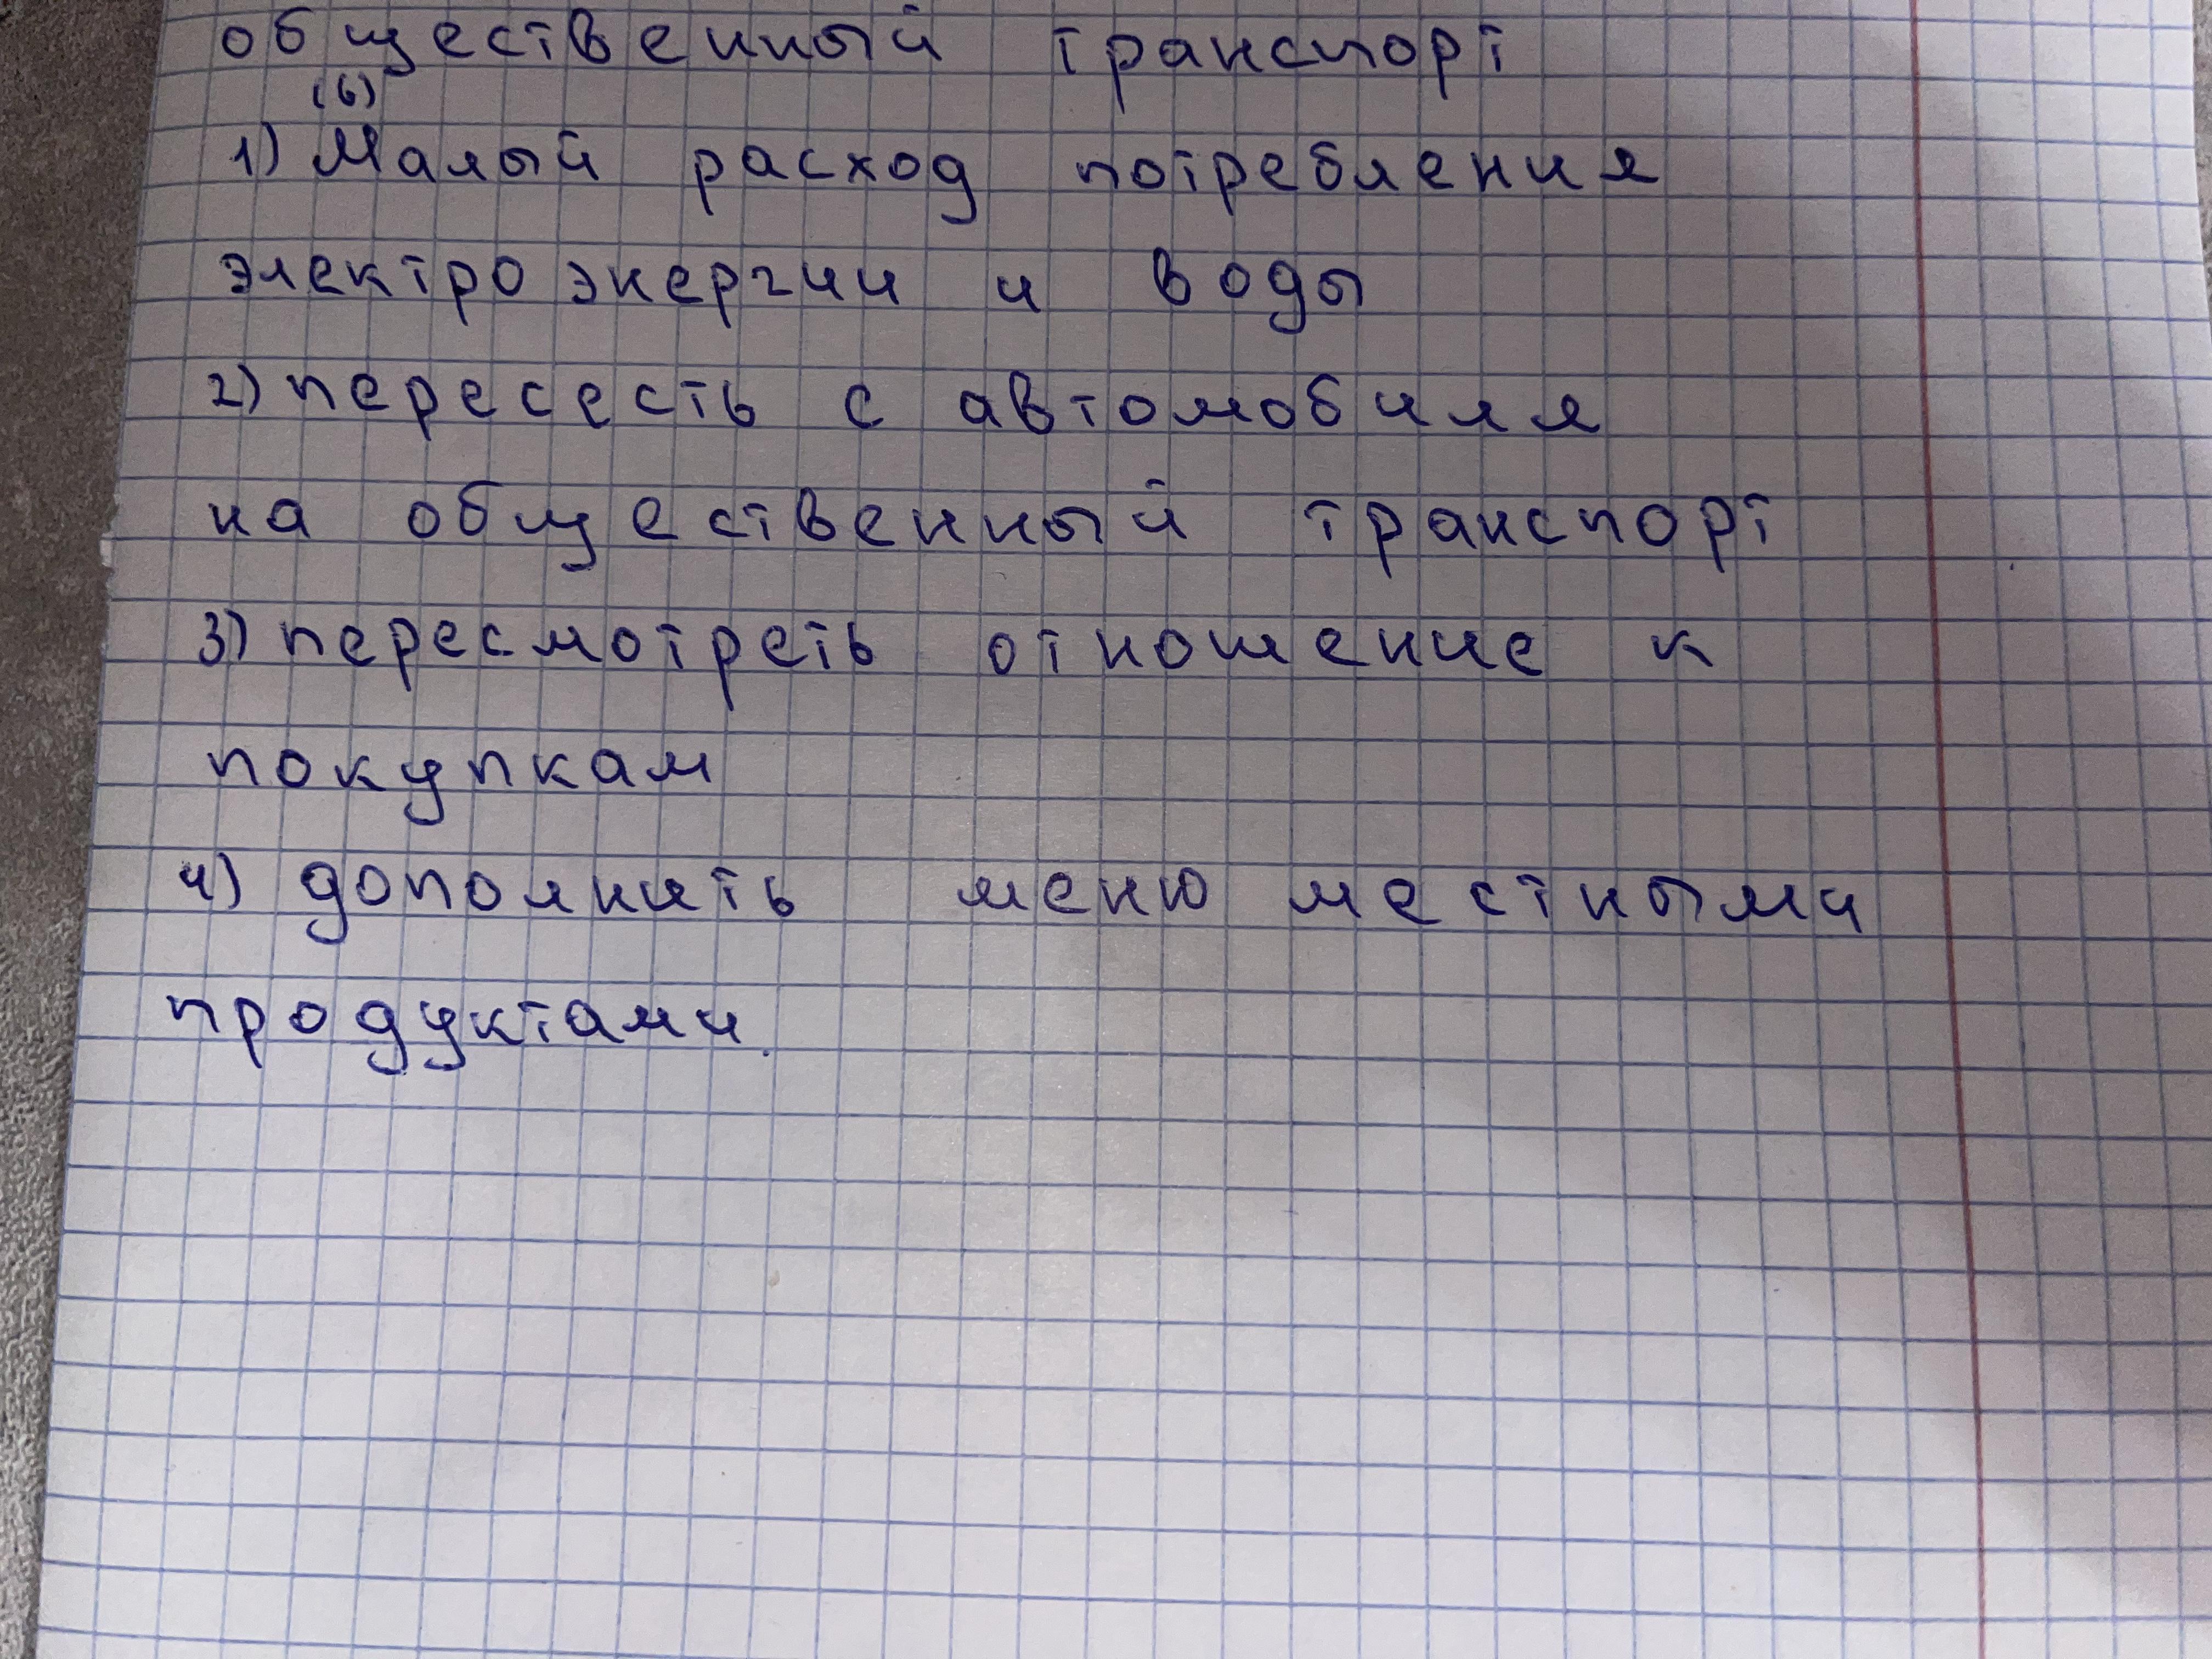 общественный транспорт
(6)
1) Малый расход потребления
электроэнергии и воды
2) пересесть с автомобиля
на общественный транспорт
3) пересмотреть отношение к
покупкам
4) дополнить меню местными
продуктами.